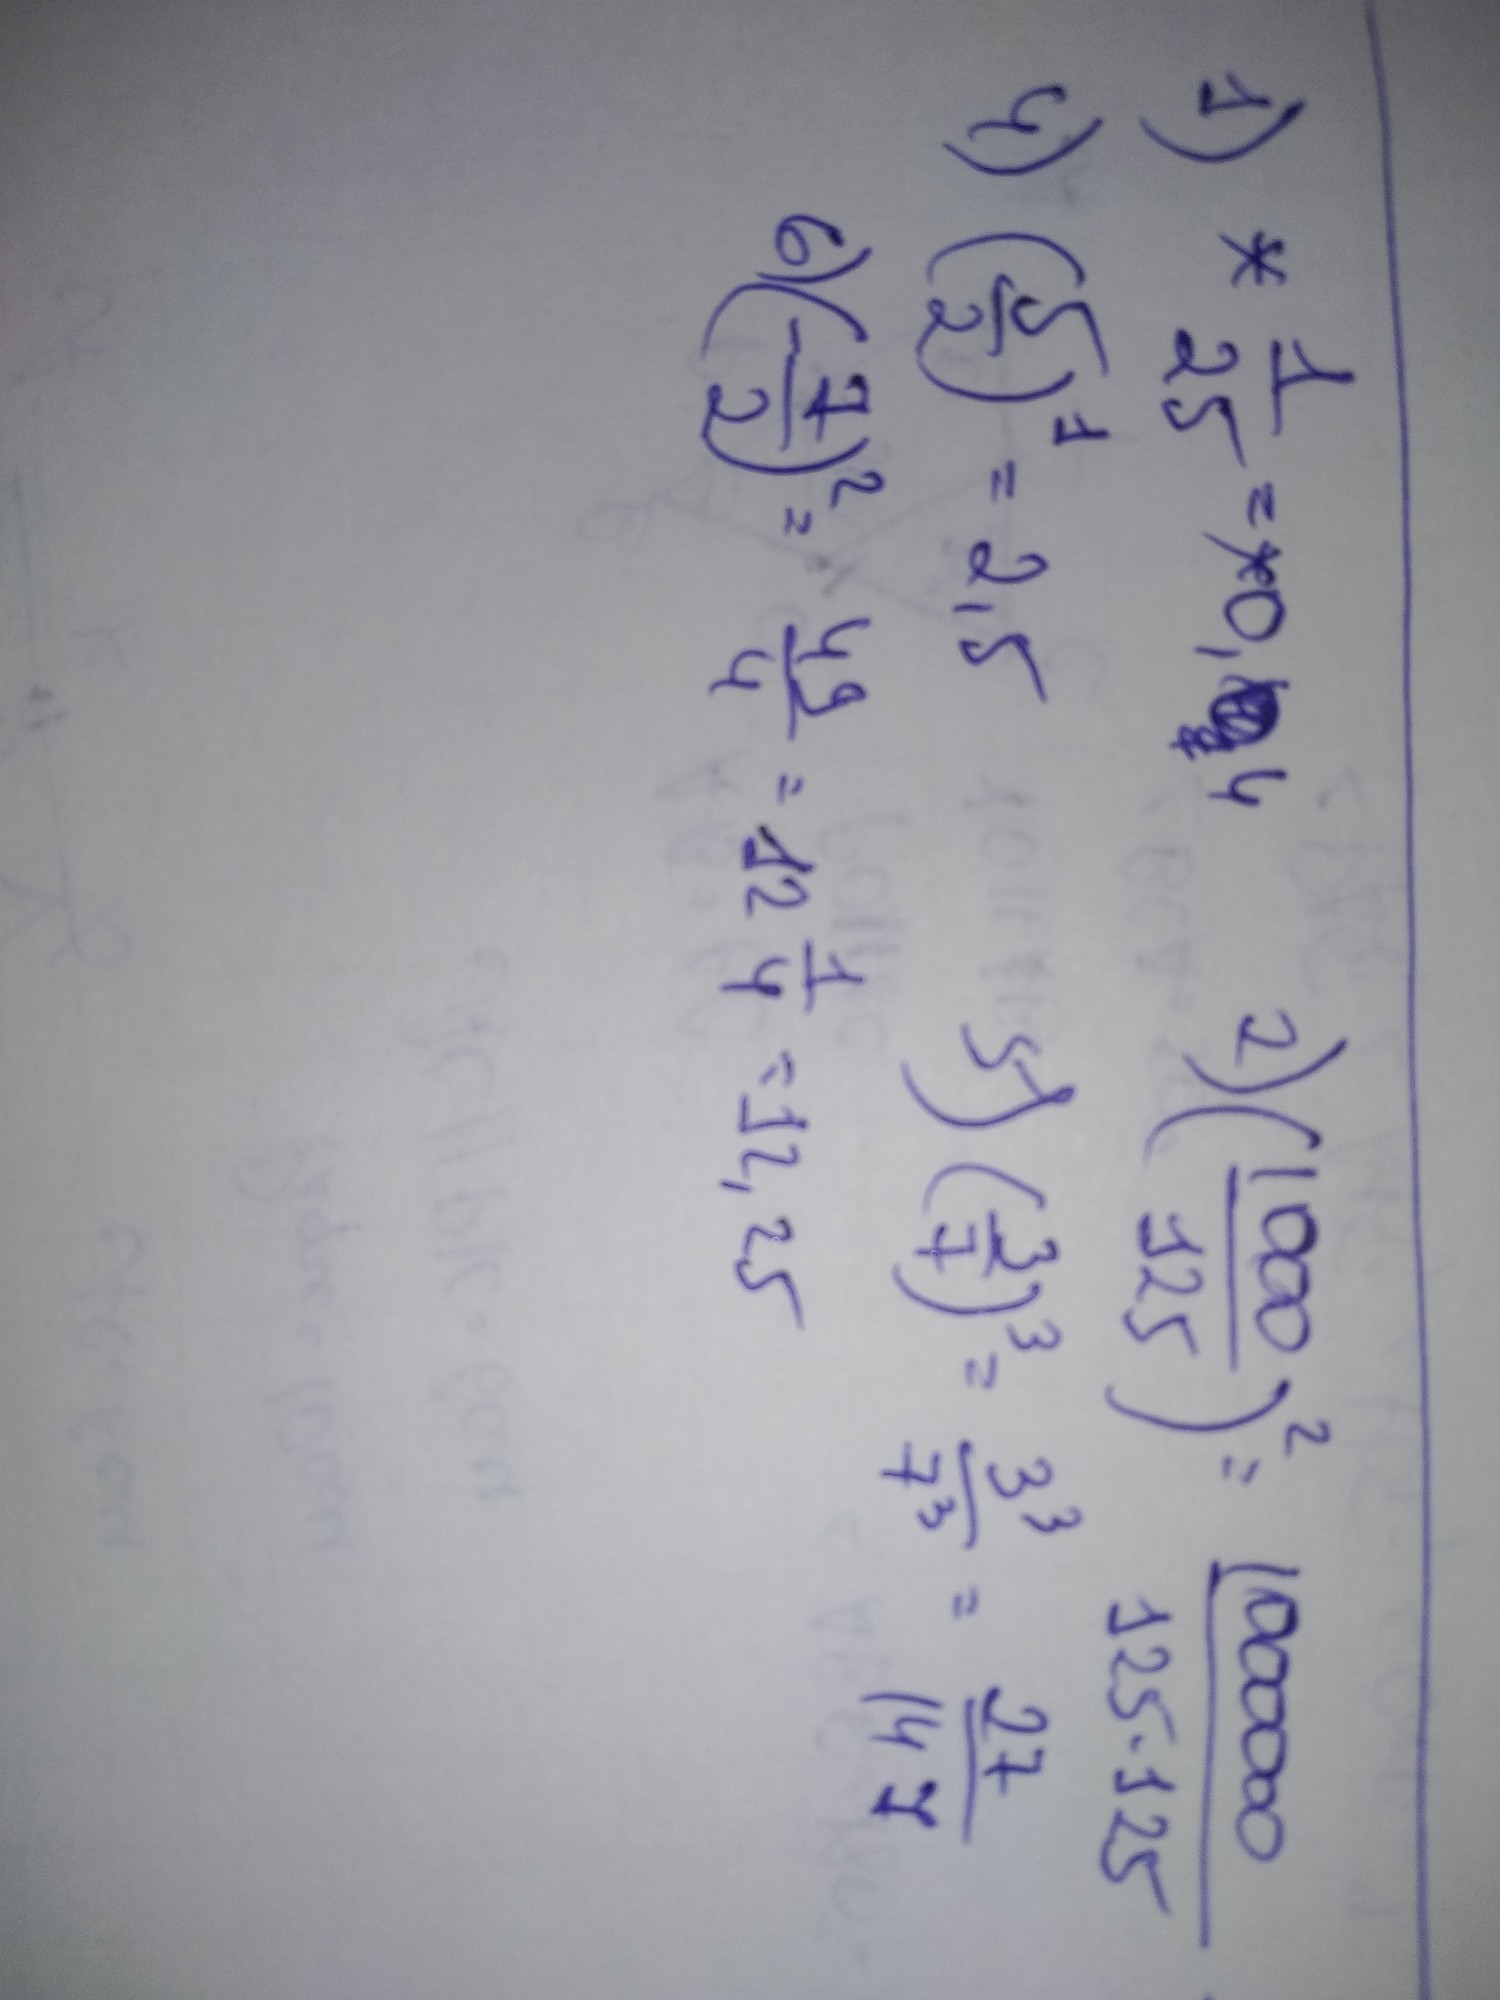 1) * 1/25 = 0,4 2) (1000/125)² = 1000000/125·125
4) (5/2)¹ = 2,5 5) (3/7)³ = 3³/7³ = 27/147
6) (-7/2)² = 49/4 = 12 1/4 = 12,25